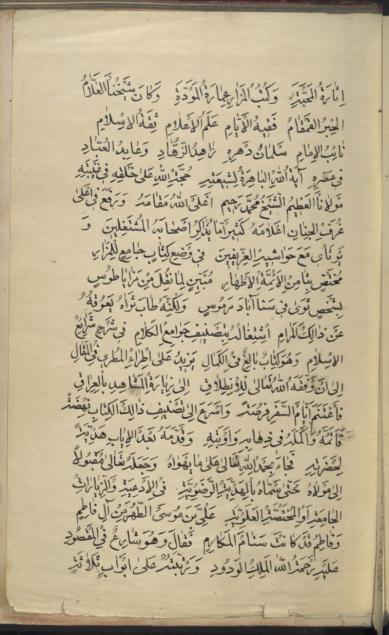 اثارة المحبة وكتب المزار عمارة المودة وكان شيخنا العلام
الحبر القمقام فقيه الأنام علم الأعلام ثقة الإسلام
نايب الإمام سلمان دهره زاهد الزهاد وعابد العباد
في عصره آية الله الباهرة لشيعته حجة الله على خلقه في غيبته
مولانا العظيم الشيخ محمد رحيم اعلى الله مقامه ورفع في اعلى
غرف الجنان اعلامه كثيراً ما يذكر اصحابه المشتغلين و
مع حواشيه العريفين في وضع كتاب جامع للمزار
مختص بثامن الأئمة الأطهار مبين لما نقل من مزايا طوس
لشخص ثوى في سناآباد مرموس ولكنه طاب ثراه يعوقه
عن ذالك المرام اشتغاله بتصنيف جوامع الكلام في شرح شرايع
الإسلام وهو كتاب بالغ في الكمال يزيد على اطراء المطري في المقال
الى ان وفقه الله تعالى للانطلاق الى زيارة المشاهد بالعراق
فاغتنم ايام السفر فرصة واسرع الى تصنيف ذالك الكتاب
في ذهابه واوبته وقدمه بعد الاياب هدية
لحضرته فجاء بحمد الله تعالى على ما يهواه وجعله تعالى مقبولا
الى مولاه حتى سماه بالهدية الرضوية في الادعية والزيارات
الجامعة او المختصة العلوية علي بن موسى الطهر من آل فاطم
وفاطم قد كانت سنام المكارم فقال وهو شارع في المقصود
عليه رحمة الله الملك الودود ورتبته على ابواب ثلاثة